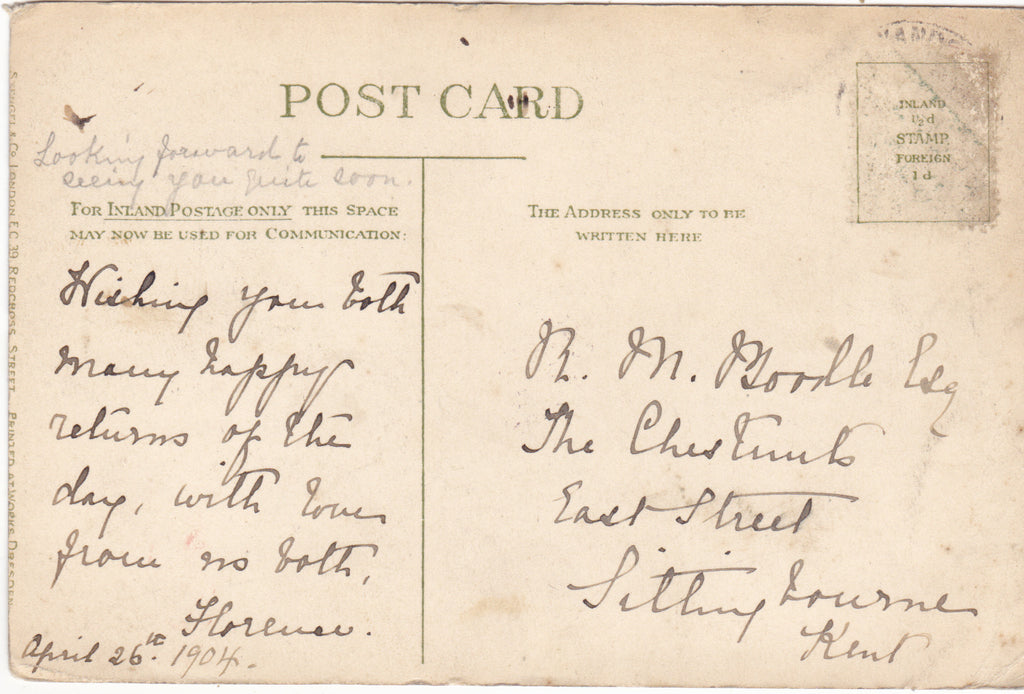 POST CARD
Looking forward to
seeing you quite soon.
FOR INLAND POSTAGE ONLY THIS SPACE
MAY NOW BE USED FOR COMMUNICATION:
Wishing you both
many happy
returns of the
day, with love
from us both,
Florence.
April 26th. 1904.
THE ADDRESS ONLY TO BE
WRITTEN HERE
INLAND
½d
STAMP
FOREIGN
1d
R. M. Boodle Esq
The Chestnuts
East Street
Sittingbourne
Kent
& CO. LONDON E.C. 39 REDCROSS STREET PRINTED AT WORKS DRESDEN